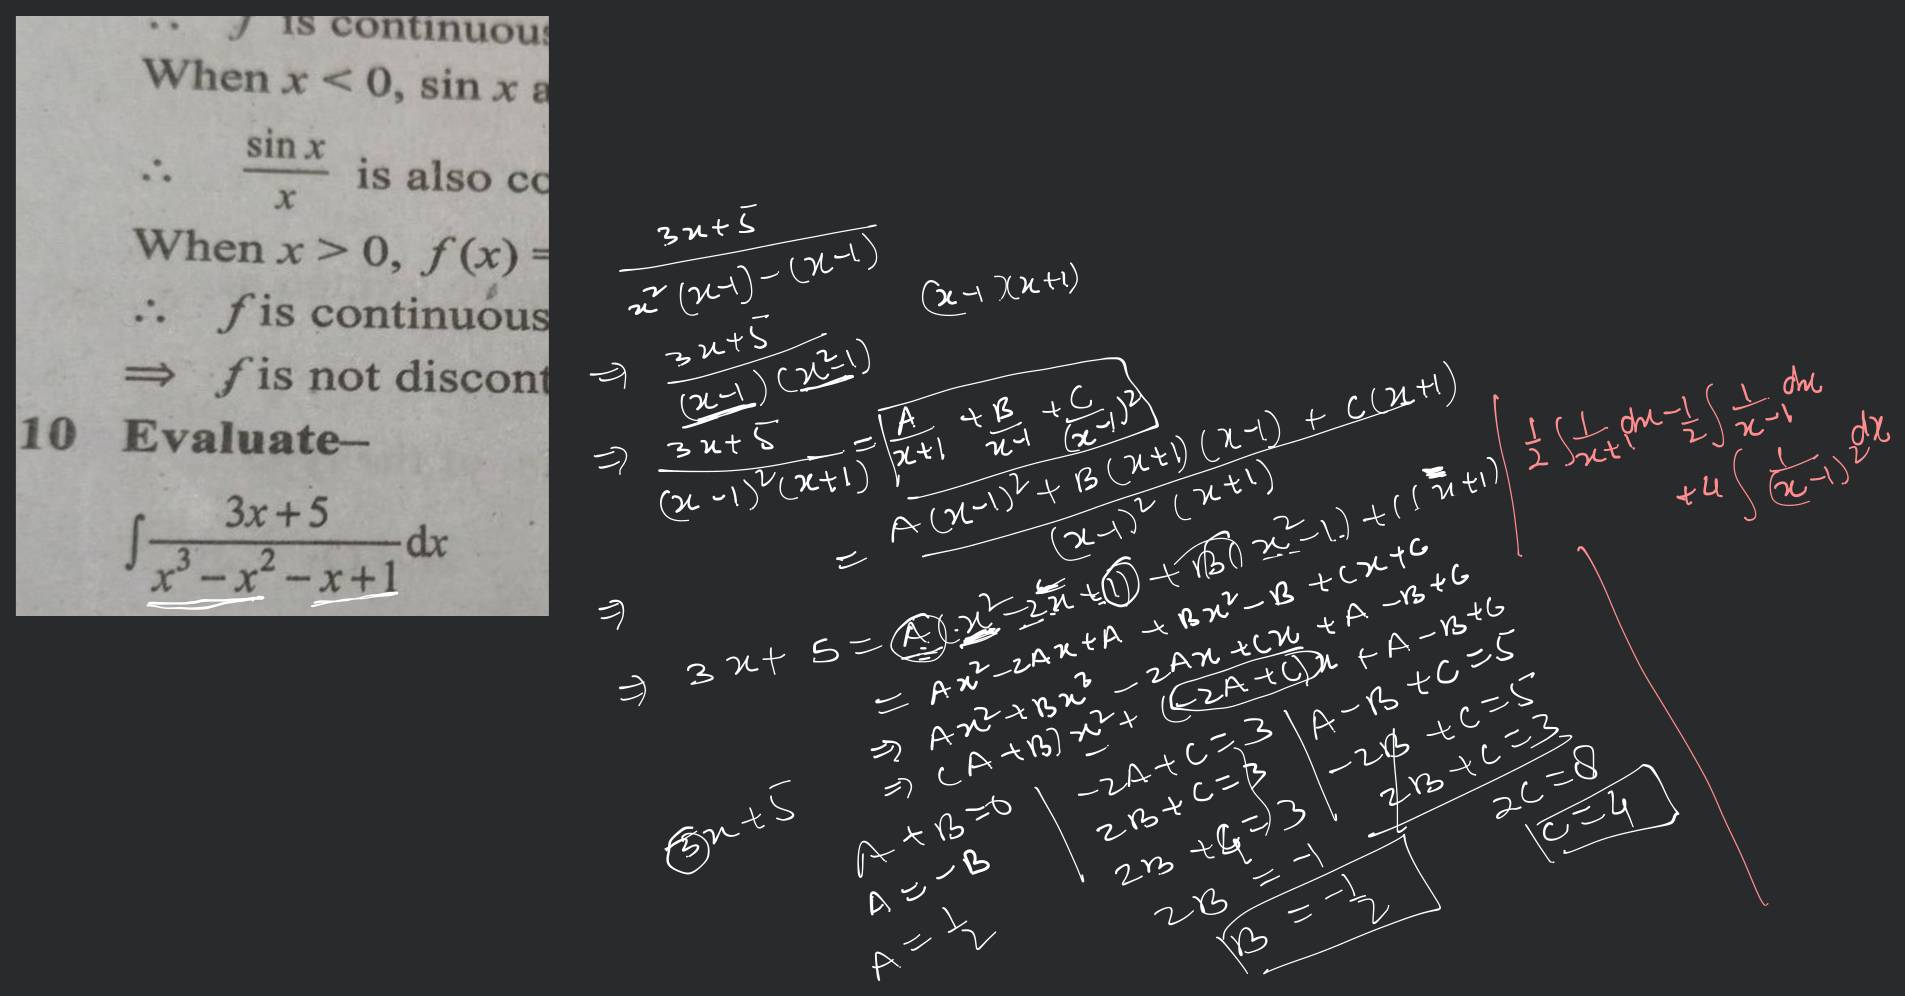 ∴ f is continuous
When x < 0, sin x a
∴ sin x / x is also co
When x > 0, f(x) =
∴ f is continuous
⇒ f is not discont
10 Evaluate–
∫ 3x+5 / x³ – x² – x+1 dx
3x+5 / x²(x-1)-(x-1)
(x-1)(x+1)
⇒ 3x+5 / (x-1)(x²-1)
⇒ 3x+5 / (x-1)²(x+1) = A/x+1 + B/x-1 + C/(x-1)²
= A(x-1)² + B(x+1)(x-1) + C(x+1) / (x-1)²(x+1)
⇒
⇒ 3x+5 = A(x²-2x+1) + B(x²-1) + C(x+1)
= Ax²-2Ax+A + Bx²-B + Cx+C
⇒ Ax²+Bx² - 2Ax + Cx + A -B+C
⇒ (A+B)x² + (-2A+C)x + A-B+C
3x+5
A+B=0
A=-B
A=1/2
-2A+C=3
2B+C=3
2B+4=3
2B=-1
B=-1/2
A-B+C=5
-2B+C=5
2B+C=3
2C=8
C=4
1/2 ∫ 1/x+1 dx - 1/2 ∫ 1/x-1 dx
+4 ∫ 1/(x-1)² dx